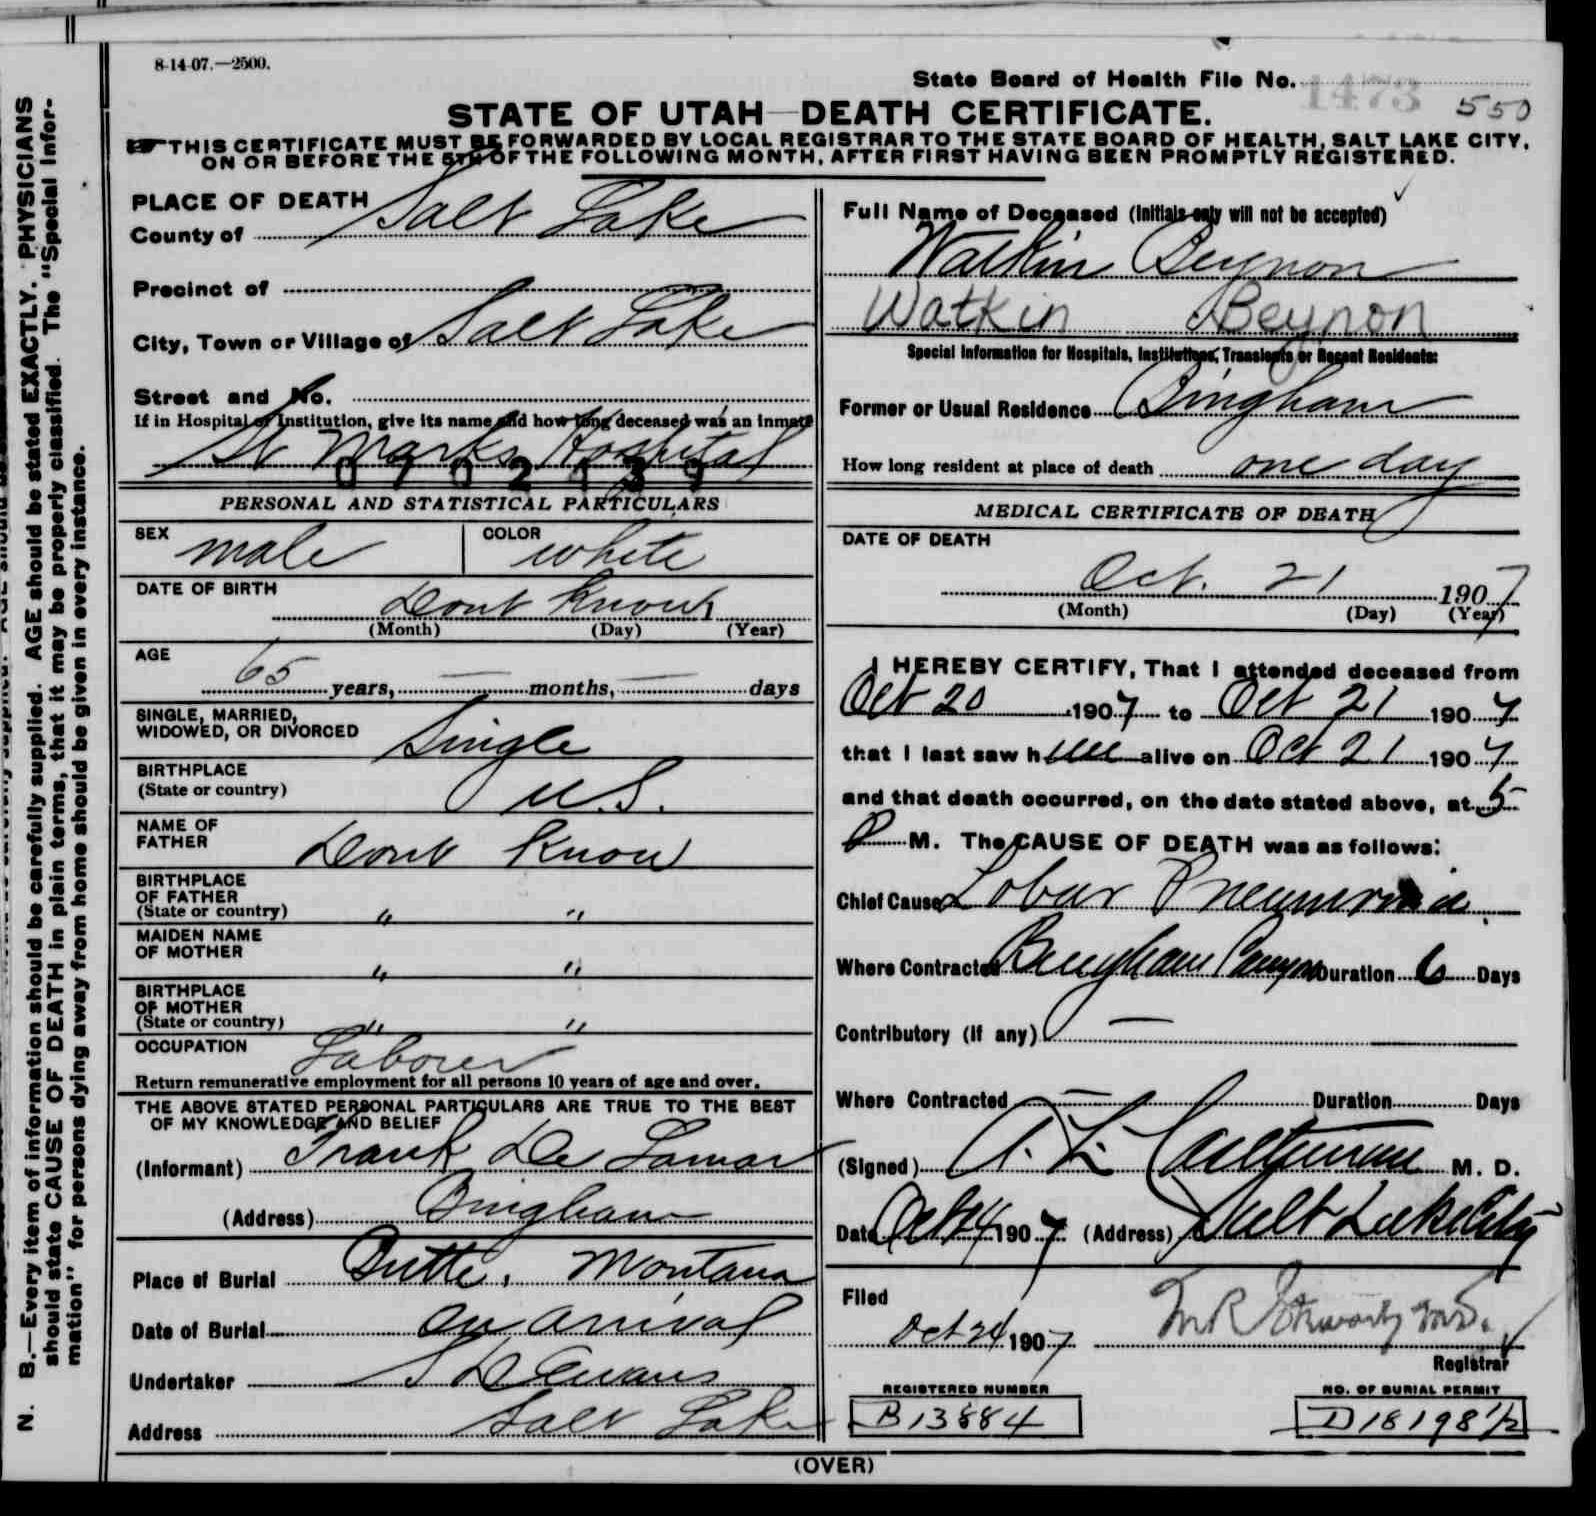 8-14-07.—2500.
State Board of Health File No. 1473
550
STATE OF UTAH—DEATH CERTIFICATE.
☞ THIS CERTIFICATE MUST BE FORWARDED BY LOCAL REGISTRAR TO THE STATE BOARD OF HEALTH, SALT LAKE CITY,
ON OR BEFORE THE 5TH OF THE FOLLOWING MONTH, AFTER FIRST HAVING BEEN PROMPTLY REGISTERED.
PLACE OF DEATH
County of Salt Lake
Precinct of
City, Town or Village of Salt Lake
Street and No.
If in Hospital or Institution, give its name and how long deceased was an inmate
St Marks Hospital
0702139
PERSONAL AND STATISTICAL PARTICULARS
SEX male COLOR white
DATE OF BIRTH Dont Know
(Month) (Day) (Year)
AGE
65 years, — months, — days
SINGLE, MARRIED,
WIDOWED, OR DIVORCED Single
BIRTHPLACE
(State or country) U.S.
NAME OF
FATHER Dont Know
BIRTHPLACE
OF FATHER
(State or country) " "
MAIDEN NAME
OF MOTHER " "
BIRTHPLACE
OF MOTHER
(State or country) " "
OCCUPATION Laborer
Return remunerative employment for all persons 10 years of age and over.
THE ABOVE STATED PERSONAL PARTICULARS ARE TRUE TO THE BEST
OF MY KNOWLEDGE AND BELIEF
(Informant) Frank De Lamar
(Address) Bingham
Place of Burial Butte, Montana
Date of Burial on arrival
Undertaker S D Evans
Address Salt Lake
Full Name of Deceased (Initials only will not be accepted)
Watkin Beynon
Watkin Beynon
Special Information for Hospitals, Institutions, Transients or Recent Residents:
Former or Usual Residence Bingham
How long resident at place of death one day
MEDICAL CERTIFICATE OF DEATH
DATE OF DEATH
Oct. 21 1907
(Month) (Day) (Year)
I HEREBY CERTIFY, That I attended deceased from
Oct 20 1907 to Oct 21 1907
that I last saw him alive on Oct 21 1907
and that death occurred, on the date stated above, at 5
P M. The CAUSE OF DEATH was as follows:
Chief Cause Lobar Pneumonia
Where Contracted Bingham Canyon Duration 6 Days
Contributory (if any) —
Where Contracted — Duration Days
(Signed) A. L. M. D.
Date Oct 24 1907 (Address) Salt Lake City
Filed
Oct 24 1907
Registrar
REGISTERED NUMBER
B13884
NO. OF BURIAL PERMIT
D18198 1/2
(OVER)
N. B.—Every item of information should be carefully supplied. AGE should be stated EXACTLY. PHYSICIANS
should state CAUSE OF DEATH in plain terms, that it may be properly classified. The "Special Infor-
mation" for persons dying away from home should be given in every instance.